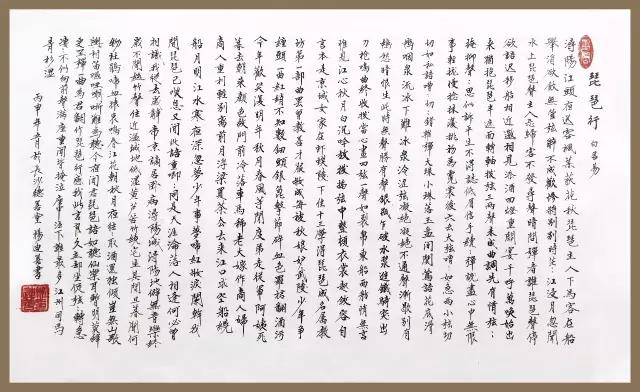 琵琶行 白居易
潯陽江頭夜送客楓葉荻花秋瑟瑟主人下馬客在船
舉酒欲飲無管弦醉不成歡慘將別別時茫茫江浸月忽聞
水上琵琶聲主人忘歸客不發尋聲暗問彈者誰琵琶聲停
欲語遲移船相近邀相見添酒回燈重開宴千呼萬喚始出
來猶抱琵琶半遮面轉軸撥弦三兩聲未成曲調先有情弦〻
掩抑聲〻思似訴平生不得志低眉信手續〻彈說盡心中無限
事輕攏慢撚抹復挑初為霓裳後六幺大弦嘈〻如急雨小弦切
切如私語嘈〻切〻錯雜彈大珠小珠落玉盤間關鶯語花底滑
幽咽泉流冰下難冰泉冷澀弦凝絕凝絕不通聲漸歇別有
幽愁暗恨生此時無聲勝有聲銀瓶乍破水漿迸鐵騎突出
刀槍鳴曲終收撥當心畫四弦一聲如裂帛東船西舫悄無言
唯見江心秋月白沉吟放撥插弦中整頓衣裳起斂容自
言本是京城女家在蝦蟆陵下住十三學得琵琶成名屬教
坊第一部曲罷曾教善才服妝成每被秋娘妒武陵少年爭
纏頭一曲紅綃不知數鈿頭銀篦擊節碎血色羅裙翻酒污
今年歡笑復明年秋月春風等閒度弟走從軍阿姨死
暮去朝來顏色故門前冷落車馬稀老大嫁作商人婦
商人重利輕別離前月浮梁買茶去去來江口守空船繞
船月明江水寒夜深忽夢少年事夢啼紅妝淚闌幹我
聞琵琶已嘆息又聞此語重唧〻同是天涯淪落人相逢何必曾
相識我從去歲辭帝京謫居臥病潯陽城潯陽地僻無音樂終
歲不聞絲竹聲住近湓城地低濕黃蘆苦竹繞宅生其間旦暮聞何
物杜鵑啼血猿哀鳴春江花朝秋月夜往〻取酒還獨傾豈無山歌
與村笛嘔啞嘲哳難為聽今夜聞君琵琶語如聽仙樂耳暫明莫辭
更坐彈一曲為君翻作琵琶行感我此言良久立卻坐促弦〻轉急淒
淒不似向前聲滿座重聞皆掩泣座中泣下誰最多江州司馬
青衫濕
丙申年 月於長沙德善堂楊迪善書